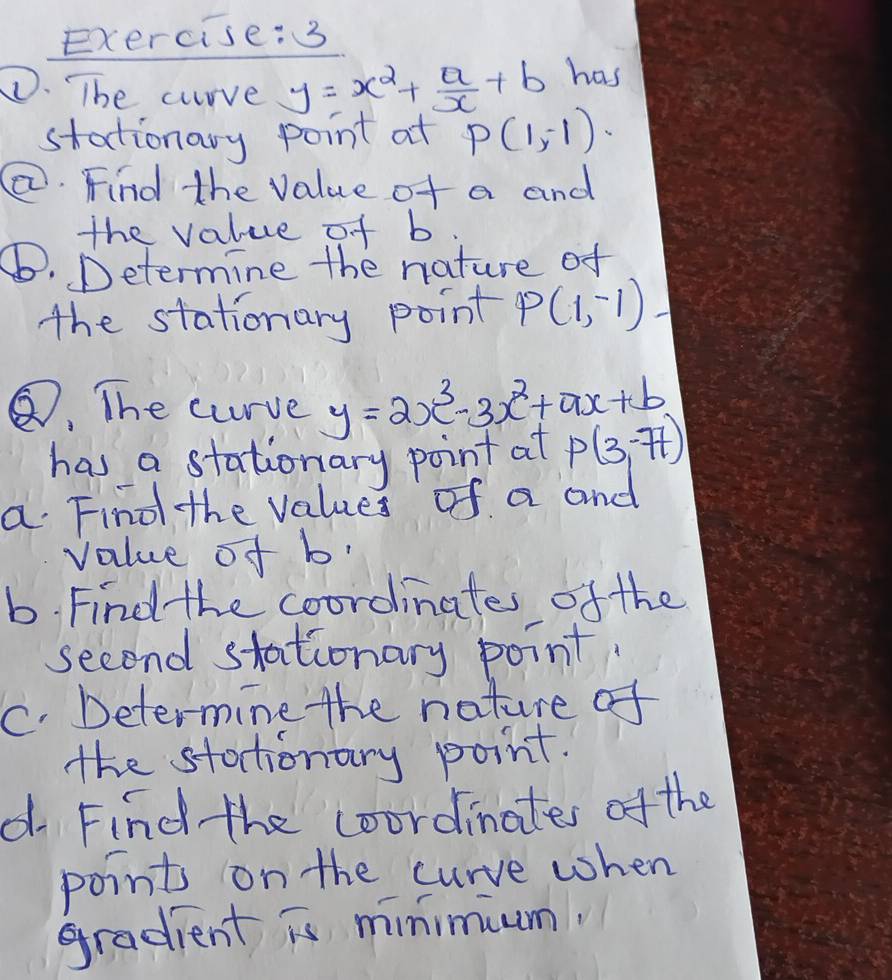 Exercise: 3
①. The curve y = x² + a/x + b has
stationary point at P(1,-1).
ⓐ. Find the value of a and
the value of b.
ⓑ. Determine the nature of
the stationary point P(1,-1)
②. The curve y = 2x³-3x²+ax+b
has a stationary point at P(3,-77)
a. Find the values of a and
value of b.
b. Find the coordinates of the
second stationary point.
c. Determine the nature of
the stationary point.
d. Find the coordinates of the
points on the curve when
gradient is minimum.